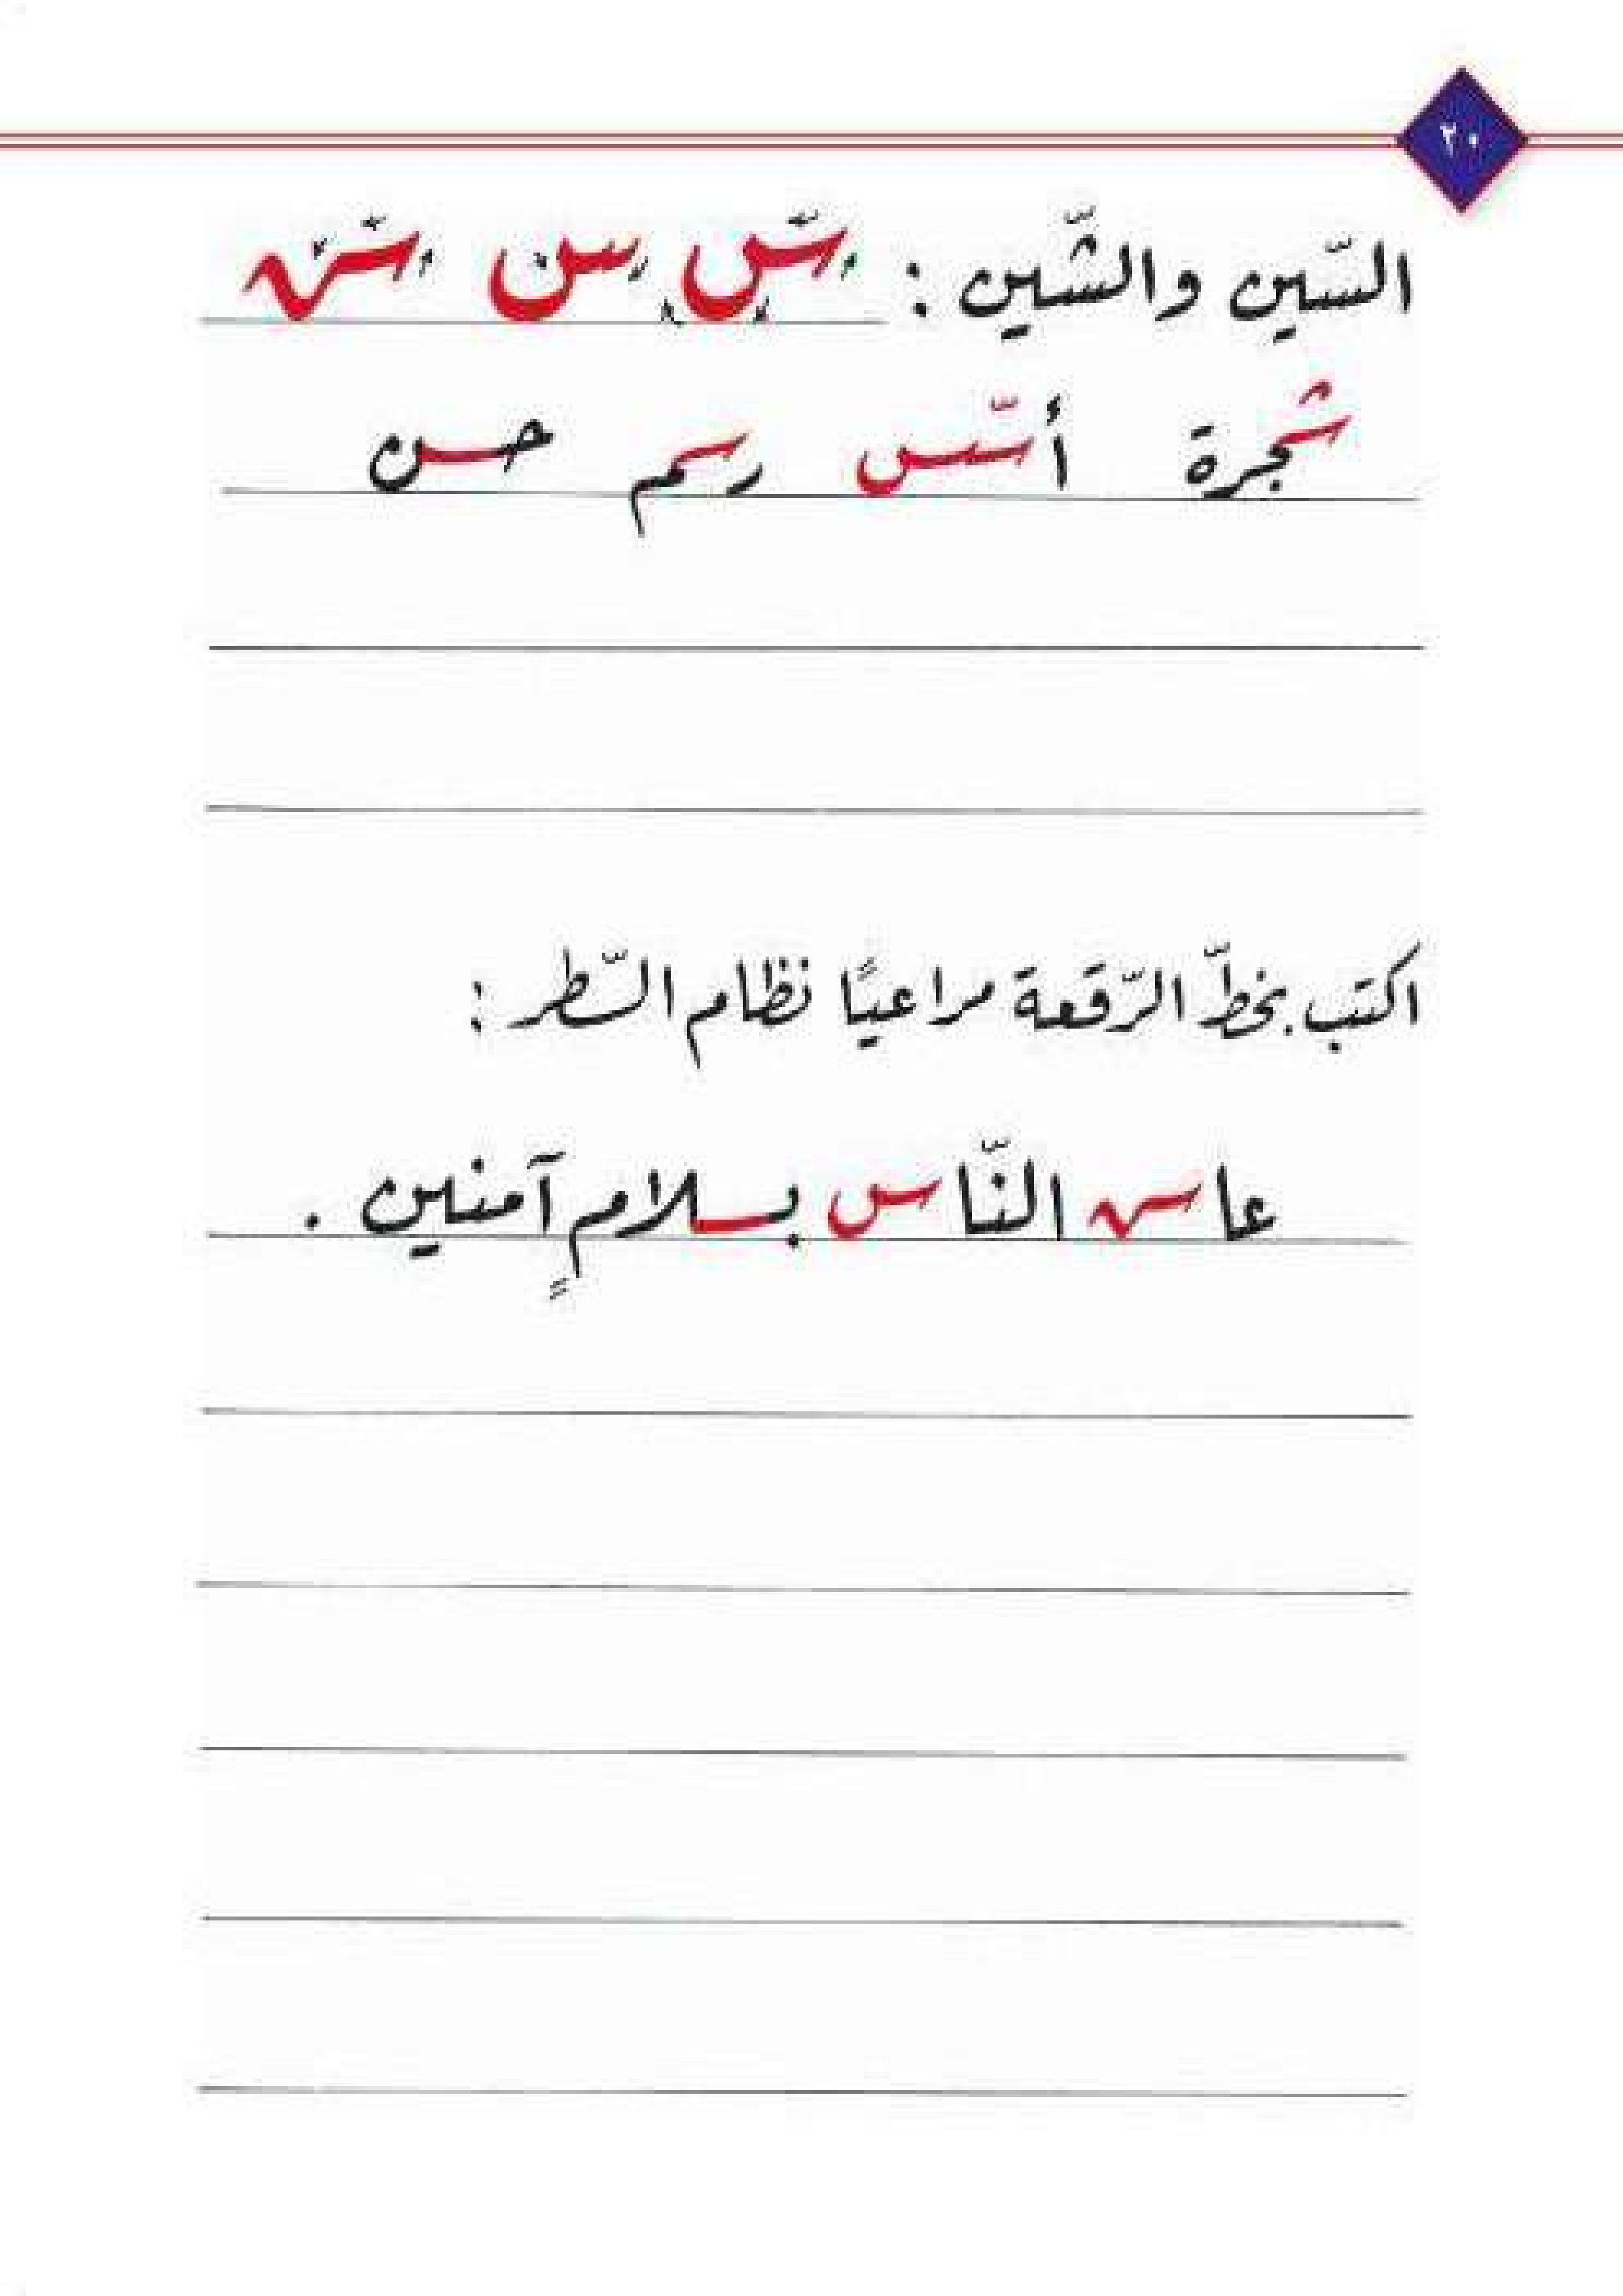 ٢٠
السّين والشّين : س س ش
شجرة أسّس رسم حسن
اكتب بخطّ الرّقعة مراعيًا نظام السّطر :
عاش النّاس بسلامٍ آمنين .